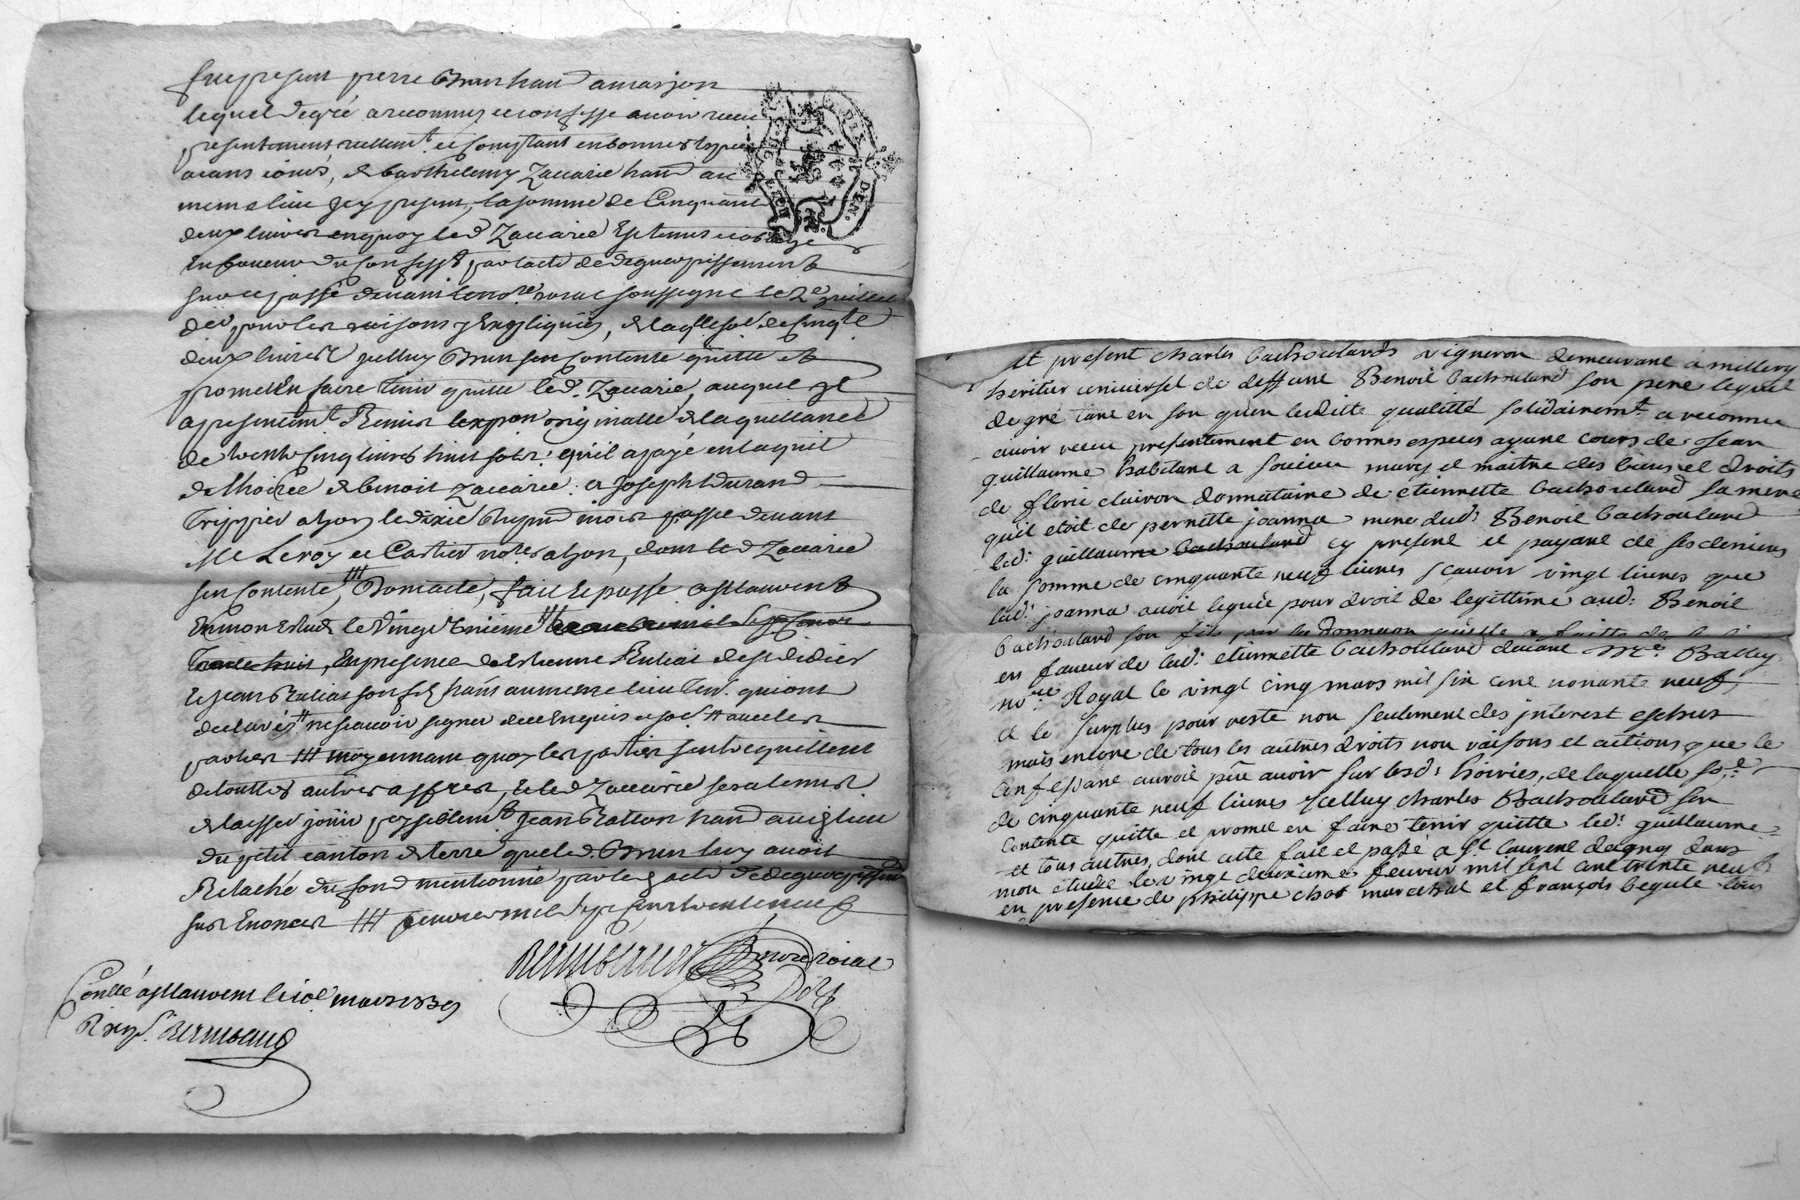 fut present pierre Brun hant a marjon
lequel de gré a reconnus et confesse avoir receu
presentement reellemt. et comptant en bonnes especes
aians cours, de barthelemy Zaccarie hant au
meme lieu jcy present, la somme de Cinquante
deux livres en quoy led Zaccarie Estenus et oblige
En faveur du confesst par acte de deguerpissement
sur ce passé devant le nore. roial soussigné le 2e juillet
der pour les raisons y Expliquées, de laqlle so. de cinqte
deux livres Jcelluy Brun sen contente quitte et
promet En faire tenir quitte led. Zaccarie, auquel Jl
a presentemt. Remis lexpon originalle de la quittance
de trente cinq livres huit sols: qu'il a payé en laquit
de lhoirie de benoit Zaccarie: a Joseph Durand
Trippier a lyon le dixie moir passe devant
Me Leroy et Cartier nores a lyon, dont led Zaccarie
sen contente, ### Dont acte, fait et passé a st laurent
En mon Etude le vingt 
trente huit, En presence de Estienne Ruliat de st didier
et jean Ruliat son fils hants au meme lieu tem. qui ont
declarés ne scavoir signer de ce Enquis et so. # avec les
parties ### moyennant quoy les parties sentrequittent
de touttes autres affres, et led Zaccarie sera tenus
de laisser joüir paysiblemt. jean Ratton hant audt lieu
du petit canton de terre que led. Brun luy avoit
Relaché du fond mentionné par le acte de deguerpissemt
sus Enoncer ### fevrier mil sept cent trente neuf
nore roial
Conllé a st laurent le 10e mars 1739
Reçu
et present charles bachoulard vigneron demeurant a millery
heritier universel de deffunt Benoit bachoulard son pere lequel
de gré tant en son quen ladite qualitté solidairemt. a reconnu
avoir receu presentement en bonnes especes ayant cours de jean
guillaume habitant a soucieu mary et maitre des biens et droits
de florie clairon donnataire de etiennette bachoulard sa mere
quil etoit de pernette joanna mere dud: Benoit bachoulard
led: guillaume bachoulard cy present et payant de ses deniers
la somme de cinquante neuf livres scavoir vingt livres que
lad: joanna avoit leguée pour droit de legittime aud: Benoit
bachoulard son fils par la donnaon quelle a faitte de
en faveur de lad: etiennette bachoulard devant Me. Bally
nore Royal le vingt cinq mars mil six cent nonante neuf,
et le surplus pour reste non seulement des jnterest eschus
mais encore de tous les autres droits noms raisons et actions que le
confessant auroit pûe avoir sur lesd: hoiries, de laquelle soe.
de cinquante neuf livres jcelluy charles Bachoulard sen
contente quitte et promet en faire tenir quitte led: guillaume
et tous autres, dont acte fait et passé a st laurent dagny dans
mon etude le vingt deuxieme feuvrier mil sept cent trente neuf
en presence de philippe chat marechal et françois begule tous